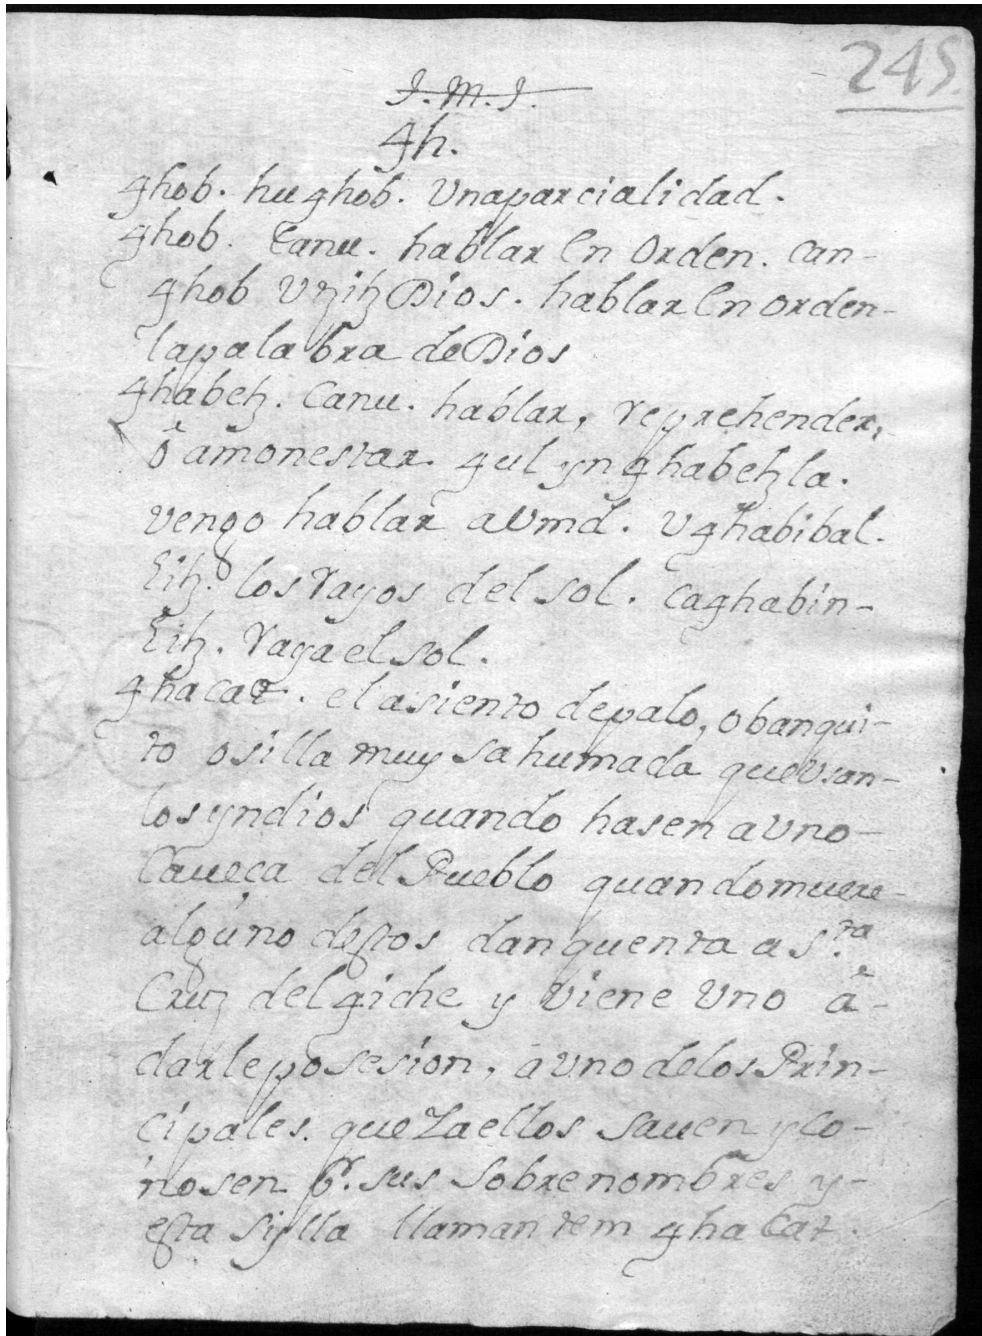 245.
J. M. J.
4h.
4hob. hu 4hob. Vnaparcialidad.
4hob. Canu. hablar En Orden. can-
4hob Vtzitz Dios. hablar En orden-
lapalabra deDios
4habetz. Canu. hablar, reprehender,
ò amonestar. 4ul yn 4habetzla.
vengo hablar aVmd. V4habibal.
Eitz. los rayos del sol. ca4habin-
Eitz. raya el sol.
4hacat. el asiento depalo, obanqui-
to osilla muy sahumada queVsan-
los yndios quando hasen aVno-
Caueca del Pueblo quandomuere-
alguno destos dan quenta a S.ta
Cruz del 4iche y viene Vno à-
darle posesion, aVno delos Prin-
cipales. que Zaellos sauen y co-
nosen pr. sus Sobrenombres y-
esta Sylla llaman tem 4hacat.